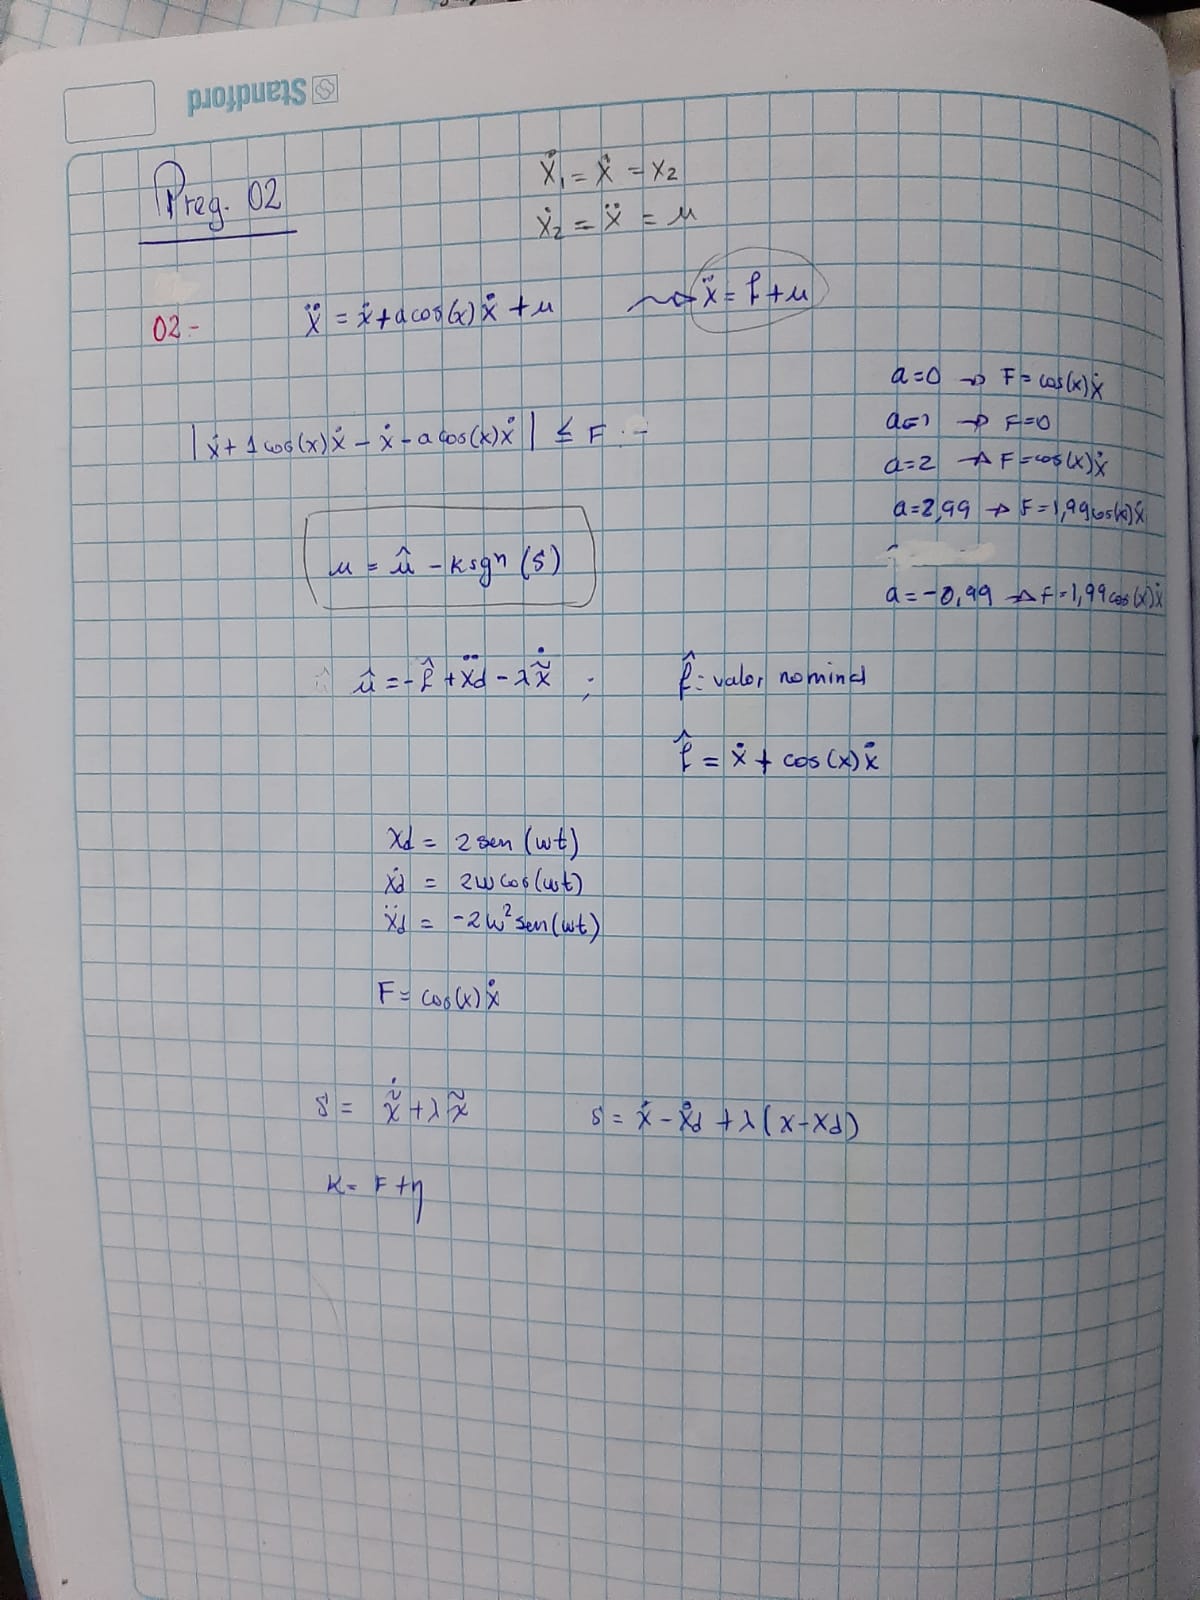 Standford
Preg. 02
ẋ₁ = ẋ = x₂
ẋ₂ = ẍ = u
02.- ẍ = ẋ + a cos(x) ẋ + u ⇝ ẍ = f + u
a=0 → F = cos(x)ẋ
a=1 → F=0
a=2 → F = cos(x)ẋ
a=2,99 → F = 1,99 cos(x)ẋ
a=-0,99 → F = 1,99 cos(x)ẋ
| ẋ + 1 cos(x)ẋ - ẋ - a cos(x)ẋ | ≤ F
u = û - k sgn(s)
û = -f̂ + ẍd - λẋ̃ ; f̂: valor nominal
f̂ = ẋ + cos(x)ẋ
xd = 2 sen(wt)
ẋd = 2w cos(wt)
ẍd = -2w² sen(wt)
F = cos(x)ẋ
s = ẋ̃ + λx̃ s = ẋ - ẋd + λ(x-xd)
K = F + η